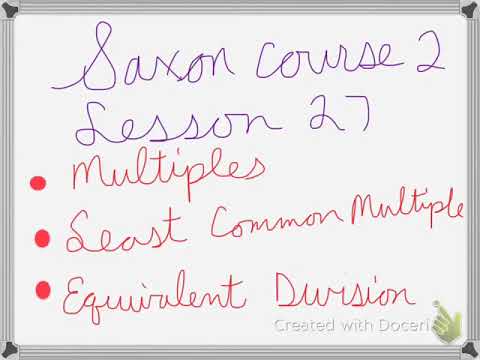 Saxon Course 2
Lesson 27
Multiples
Least Common Multiple
Equivalent Division
Created with Doceri